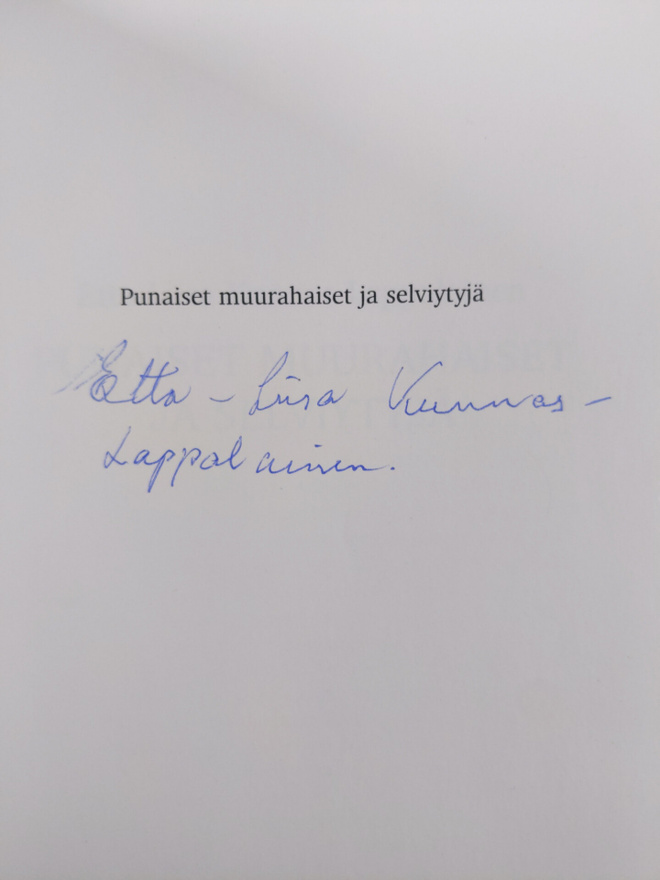 Punaiset muurahaiset ja selviytyjä
Etta - Liisa Kunnas -
Lappalainen.